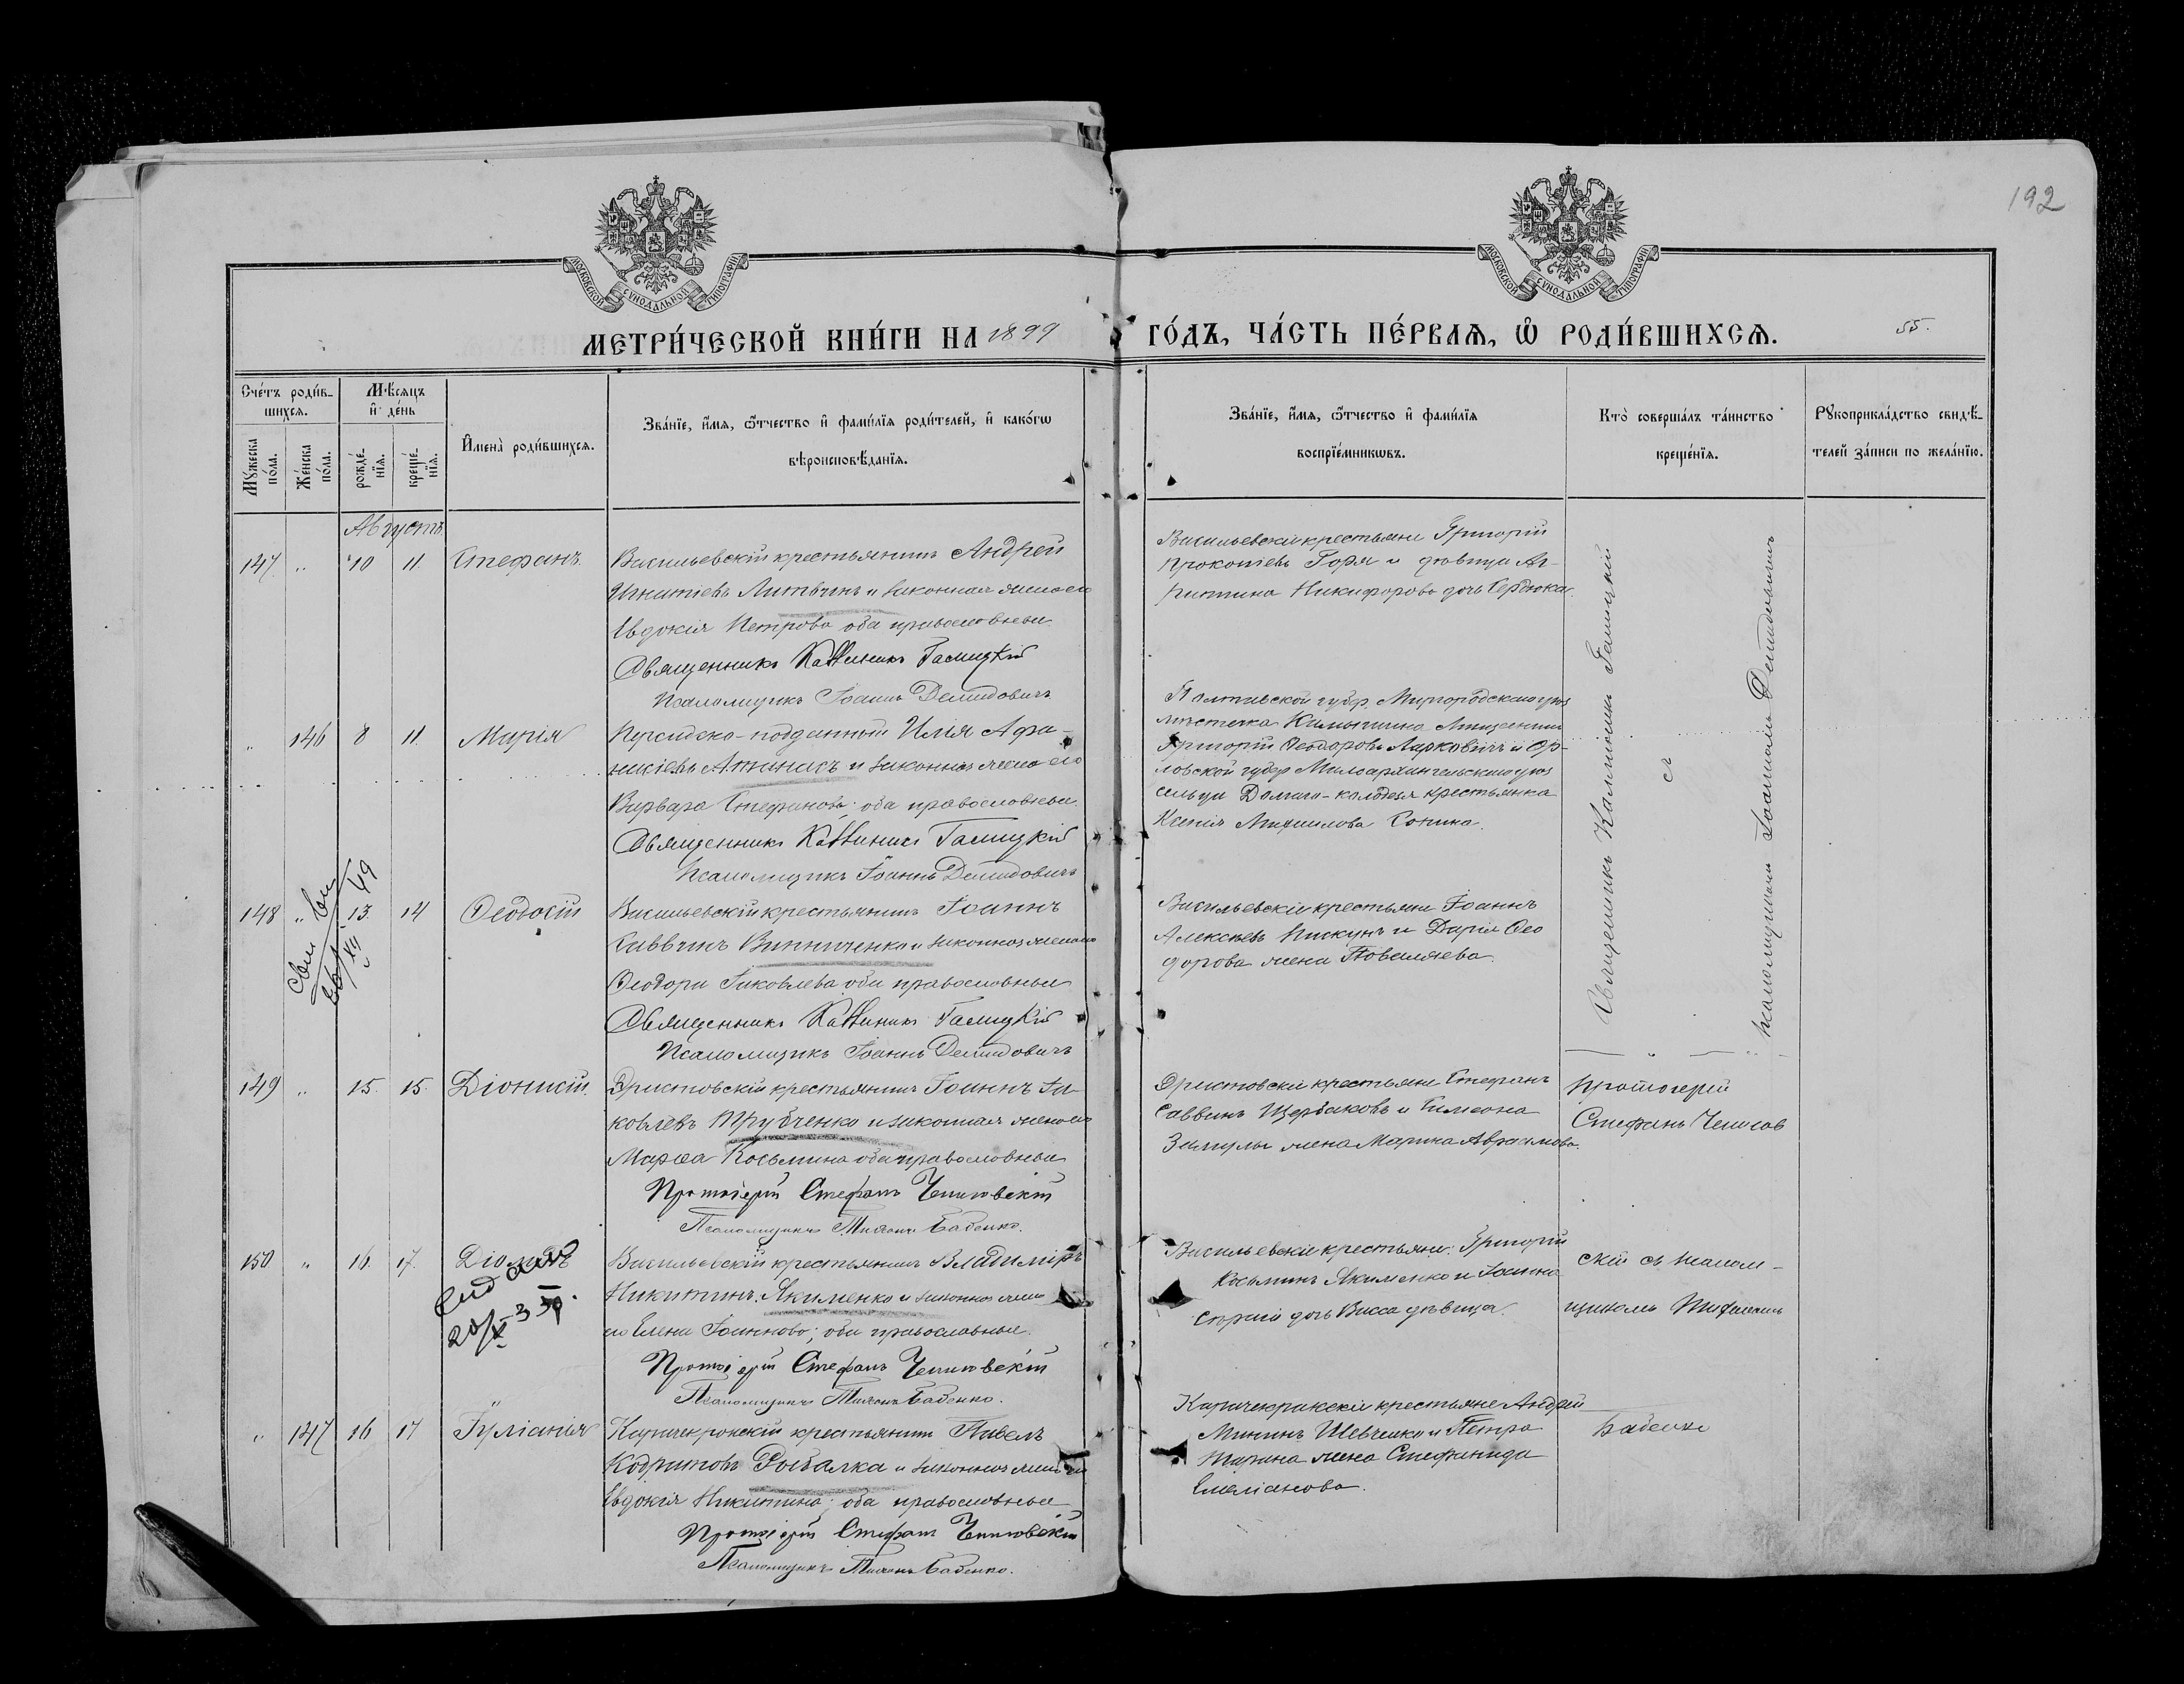 192
МОСКОВСКОЙ СѴНОДАЛЬНОЙ ТИПОГРАФІИ
МОСКОВСКОЙ СѴНОДАЛЬНОЙ ТИПОГРАФІИ
МЕТРИ́ЧЕСКОЙ КНИ́ГИ НА 1899 ГО́ДЪ, ЧА́СТЬ ПЕ́РВАѦ, Ѡ҆ РОДИ́ВШИХСѦ.
55.
Сче́тъ роди́в-
шихсѧ.
Мꙋ́жеска по́ла.
Же́нска по́ла.
Мѣ́сѧцъ
и҆ де́нь
рожде́-
нїѧ.
креще́-
нїѧ.
И҆мена̀ роди́вшихсѧ.
Зва́нїе, и҆́мѧ, ѻ҆́тчество и҆ фами́лїѧ роди́телей, и҆ како́гѡ
вѣроисповѣ́данїѧ.
Зва́нїе, и҆́мѧ, ѻ҆́тчество и҆ фами́лїѧ
воспрїе́мникѡвъ.
Кто̀ соверша́лъ та́инство
креще́нїѧ.
Рꙋкоприкла́дство свидѣ́-
телей за́писи по жела́нїю.
Августъ
147. " 10 11. Стефанъ.
Васильевскій крестьянинъ Андрей
Игнатіевъ Литвинъ и законная жена его
Евдокія Петрова оба православные
Священникъ Каллиникъ Галицкій
Псаломщикъ Іоаннъ Демидовичъ
Васильевскіе крестьяне Григорій
Прокопіевъ Горя и девица Аг-
рипина Никифорова дочь Сердюка.
" 146 8 11. Марія
Персидско-подданный Илія Афа-
насіевъ Атанасъ и законная жена его
Варвара Стефанова; оба православные.
Священникъ Каллиникъ Галицкій
Псаломщикъ Іоаннъ Демидовичъ
Полтавской губер. Миргородскаго уез
местечка Камышина Мещанинъ
Григорій Феодоровъ Ларковичъ и Ор-
ловской губер Малоархангельскаго уез
сельца Долгаго-колодезя крестьянка
Ксенія Михаилова Сопина.
148 " 13. 14 Феодосій
Васильевскій крестьянинъ Іоаннъ
Саввинъ Винниченко и законная жена его
Феодора Іаковлева оба православные
Священникъ Каллиникъ Галицкій
Псаломщикъ Іоаннъ Демидовичъ
Васильевскіе крестьяне Іоаннъ
Алексеевъ Пискунъ и Дарія Фео
дорова жена Повеляева.
Священникъ Каллиникъ Галицкій
съ
псаломщикомъ Іоанномъ Демидовичемъ
149 " 15. 15. Діонисій.
крестьянинъ Іоаннъ Іа-
ковлевъ Трубченко и законная жена его
Марфа Косьмина оба православные
Протоіерей Стефанъ
Псаломщикъ Тихонъ Бабенко.
крестьяне Стефанъ
Саввинъ Щербаковъ и Симеона
жена Марина Авраамова.
Протоіерей
Стефанъ
150 " 16. 17. Діомидъ
Васильевскій крестьянинъ Владиміръ
Никитинъ Якименко и законная жена
его Елена Іоаннова; оба православные.
Протоіерей Стефанъ
Псаломщикъ Тихонъ Бабенко.
Васильевскіе крестьяне: Григорій
Косьминъ Якименко и Іоанна
дочь Висса девица.
скій съ псалом-
щикомъ
" 147 16 17 Іуліанія
крестьянинъ Павелъ
Кодратовъ Рыбалка и законная жена его
Евдокія Никитина; оба православные
Протоіерей Стефанъ
Псаломщикъ Тихонъ Бабенко.
крестьяне Андрей
Мининъ Шевченко и Петра
жена Стефанида
Емеліанова.
Бабенко